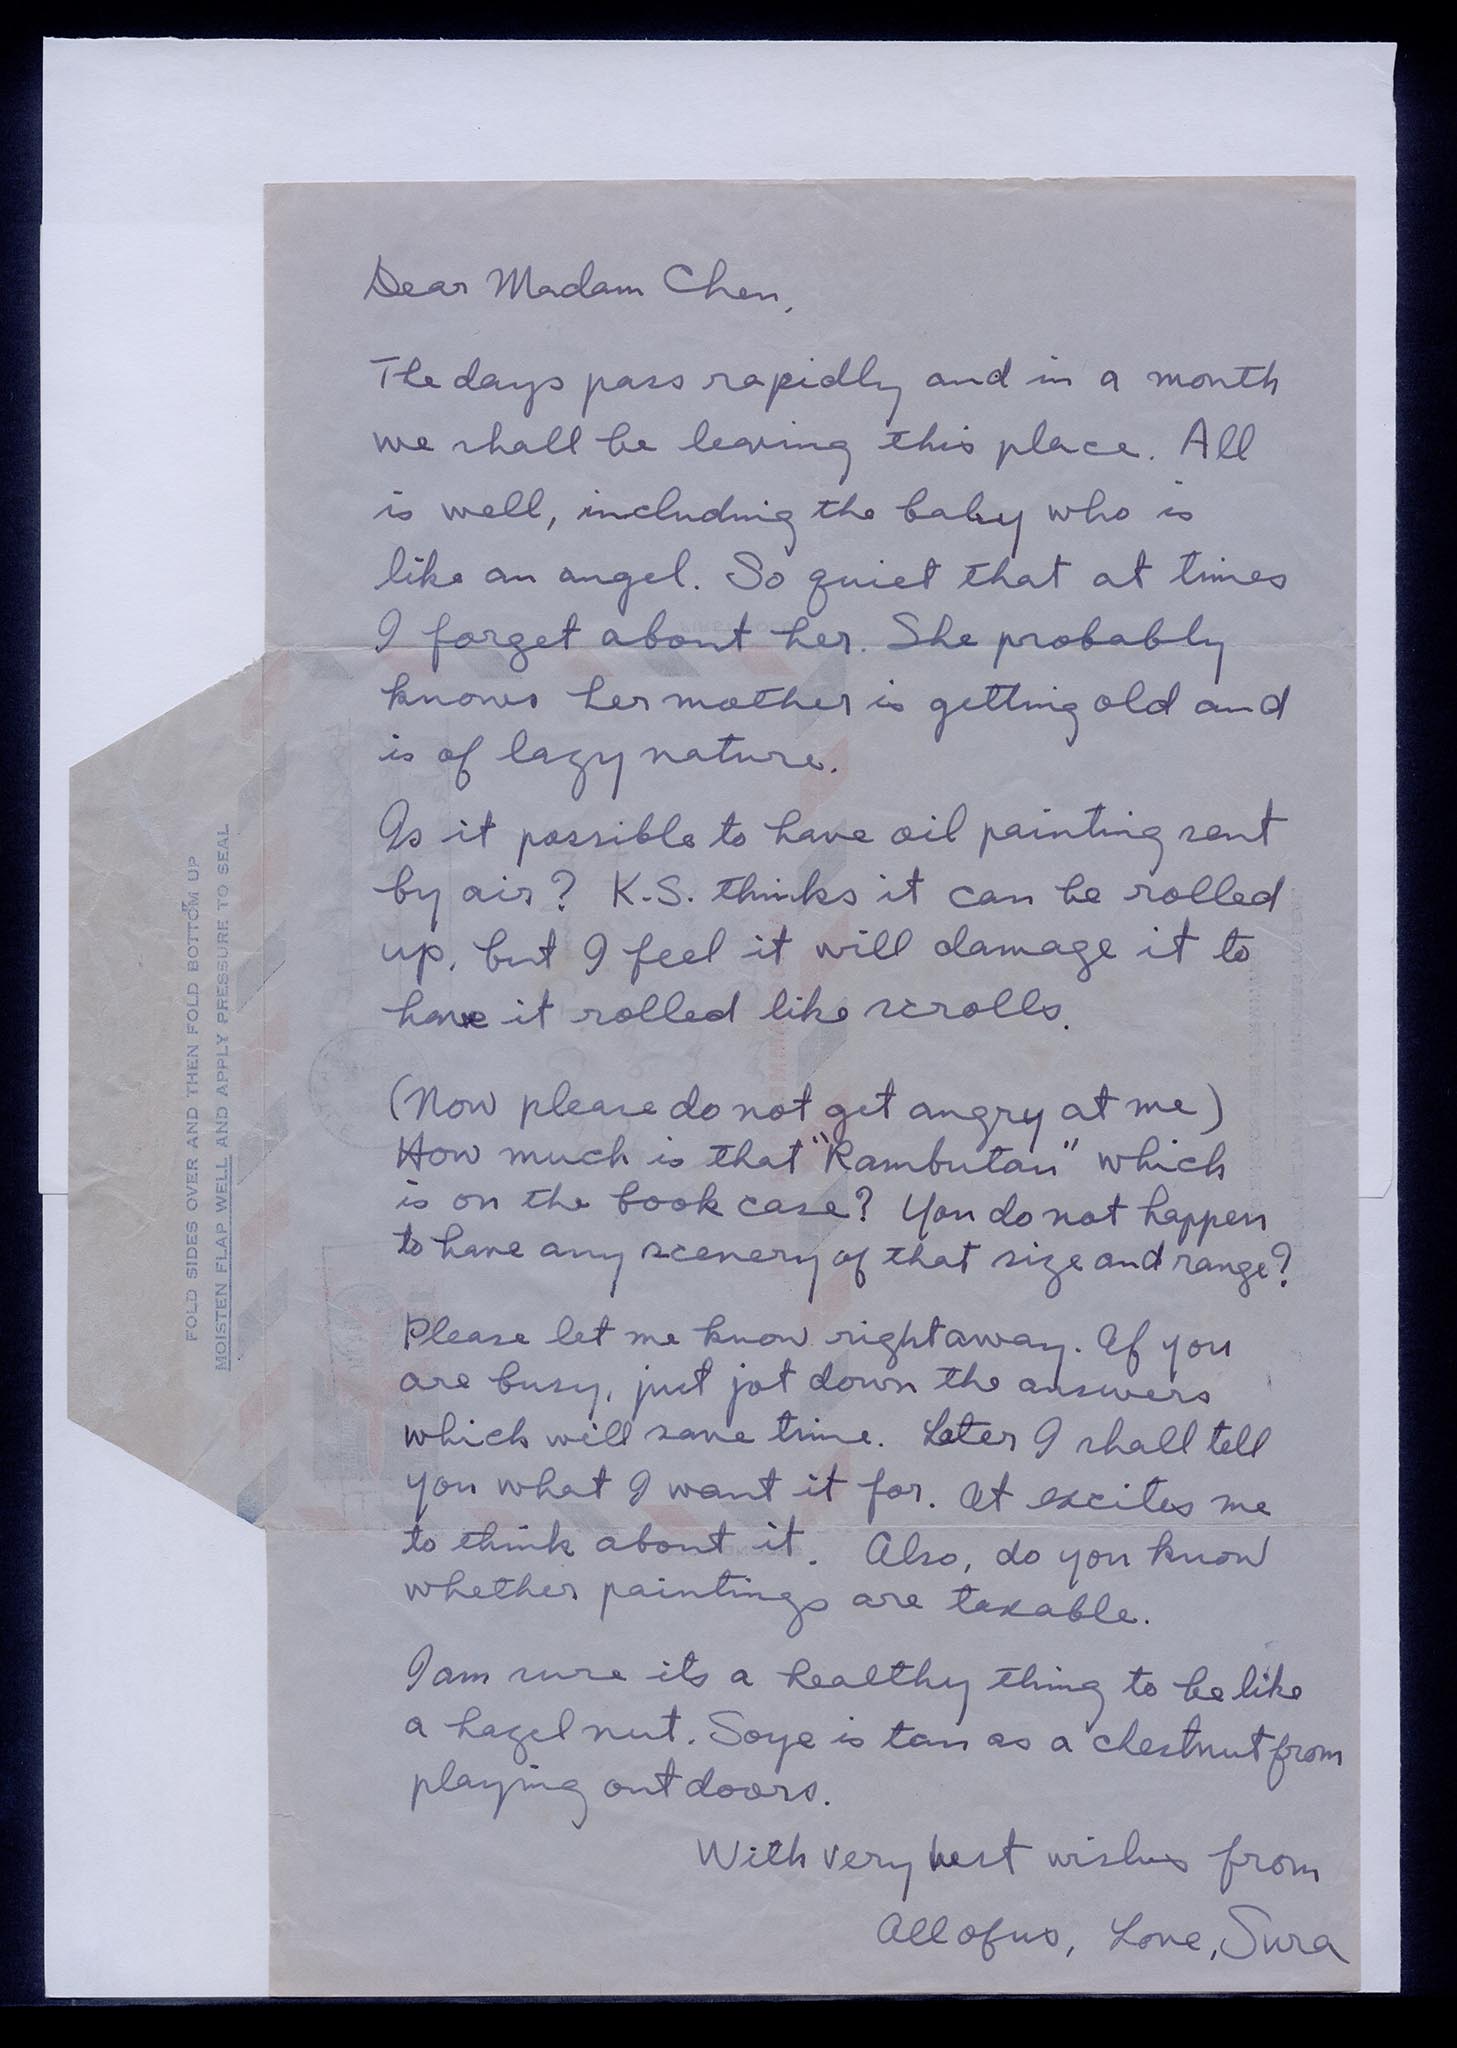 Dear Madam Chen,
The days pass rapidly and in a month
we shall be leaving this place. All
is well, including the baby who is
like an angel. So quiet that at times
I forget about her. She probably
knows her mother is getting old and
is of lazy nature.
Is it possible to have oil painting sent
by air? K.S. thinks it can be rolled
up, but I feel it will damage it to
have it rolled like scrolls.
(Now please do not get angry at me)
How much is that "Rambutan" which
is on the book case? You do not happen
to have any scenery of that size and range?
Please let me know right away. If you
are busy, just jot down the answers
which will save time. Later I shall tell
you what I want it for. It excites me
to think about it. Also, do you know
whether paintings are taxable.
I am sure its a healthy thing to be like
a hazel nut. Soye is tan as a chestnut from
playing outdoors.
With very best wishes from
All of us, Love, Sura
FOLD SIDES OVER AND THEN FOLD BOTTOM UP
MOISTEN FLAP WELL AND APPLY PRESSURE TO SEAL